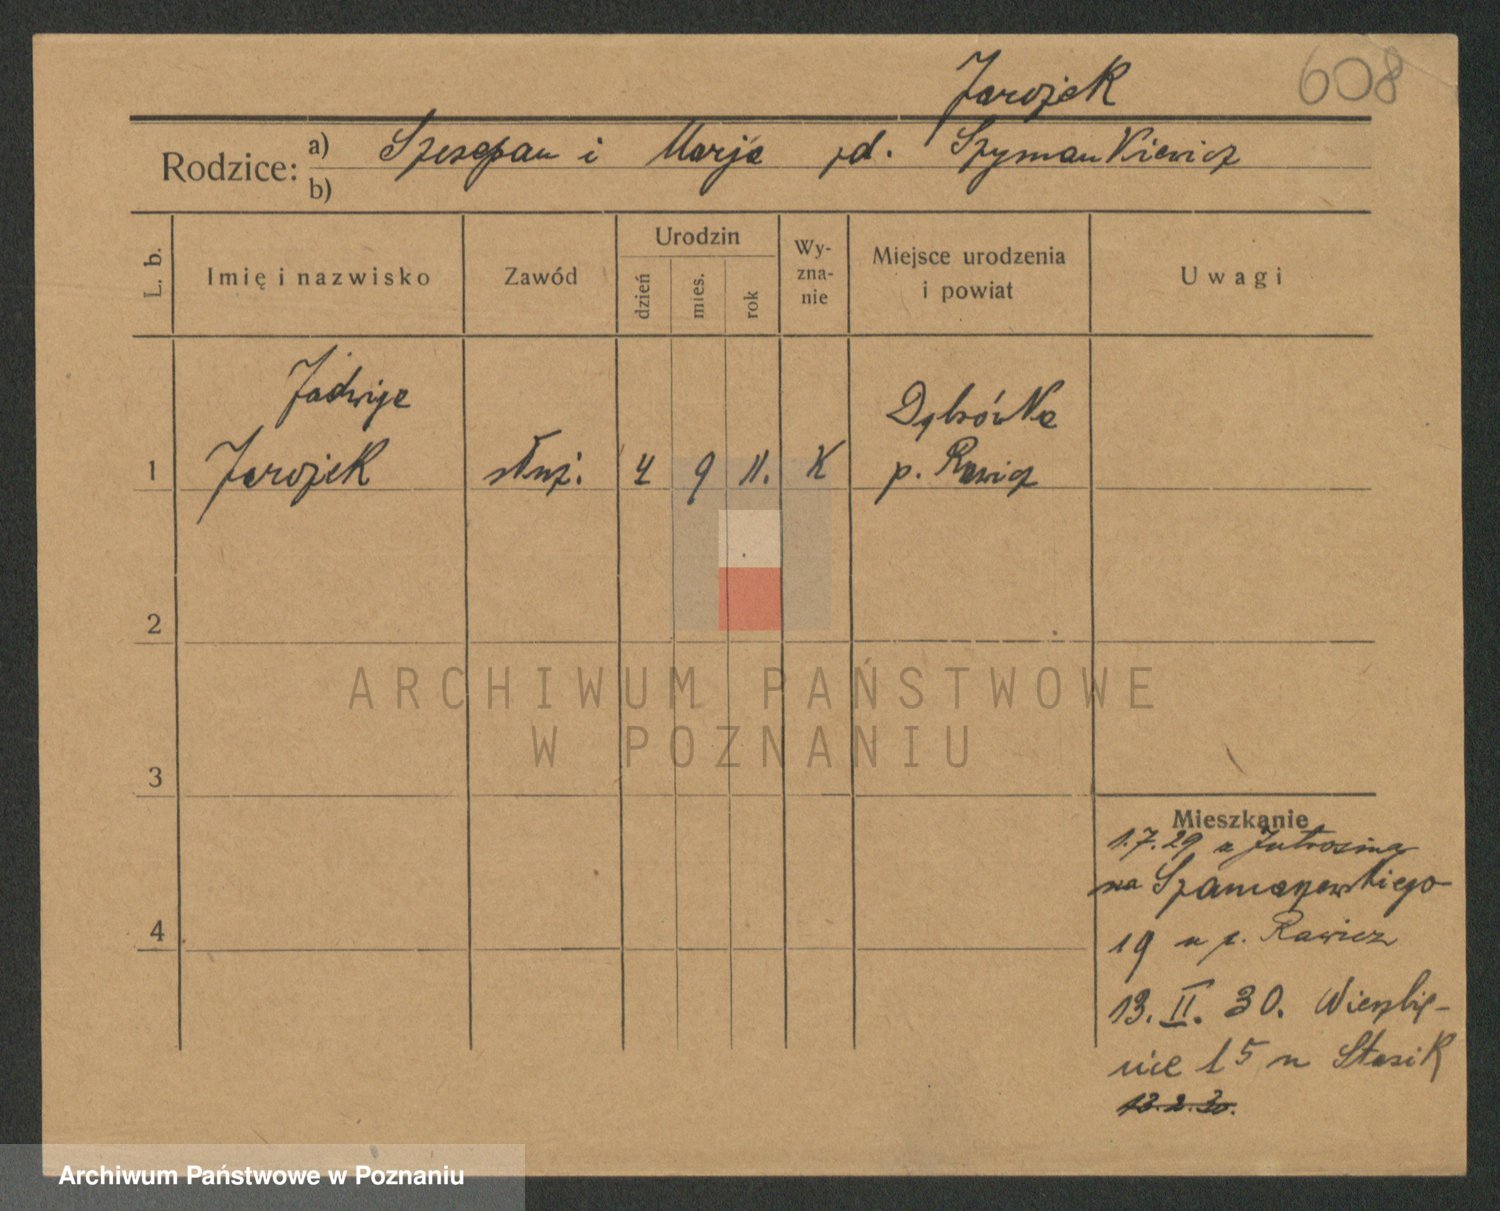 Jarojek
608
Rodzice: a) Szczepan i Marja zd. Szymankiewicz
b)
L. b.
Imię i nazwisko
Zawód
Urodzin
dzień
mies.
rok
Wy-
zna-
nie
Miejsce urodzenia
i powiat
Uwagi
Jadwiga
Dąbrówka
1 Jarojek służ. 4 9 11. K p. Rawicz
2
3
4
ARCHIWUM PAŃSTWOWE
W POZNANIU
Mieszkanie
1.7.29 z Jutrosina
na Szamarzewskiego
19 u p. Rawicz
13. II. 30. Wierzbię-
cice 15 u Stasik
13.2.30.
Archiwum Państwowe w Poznaniu